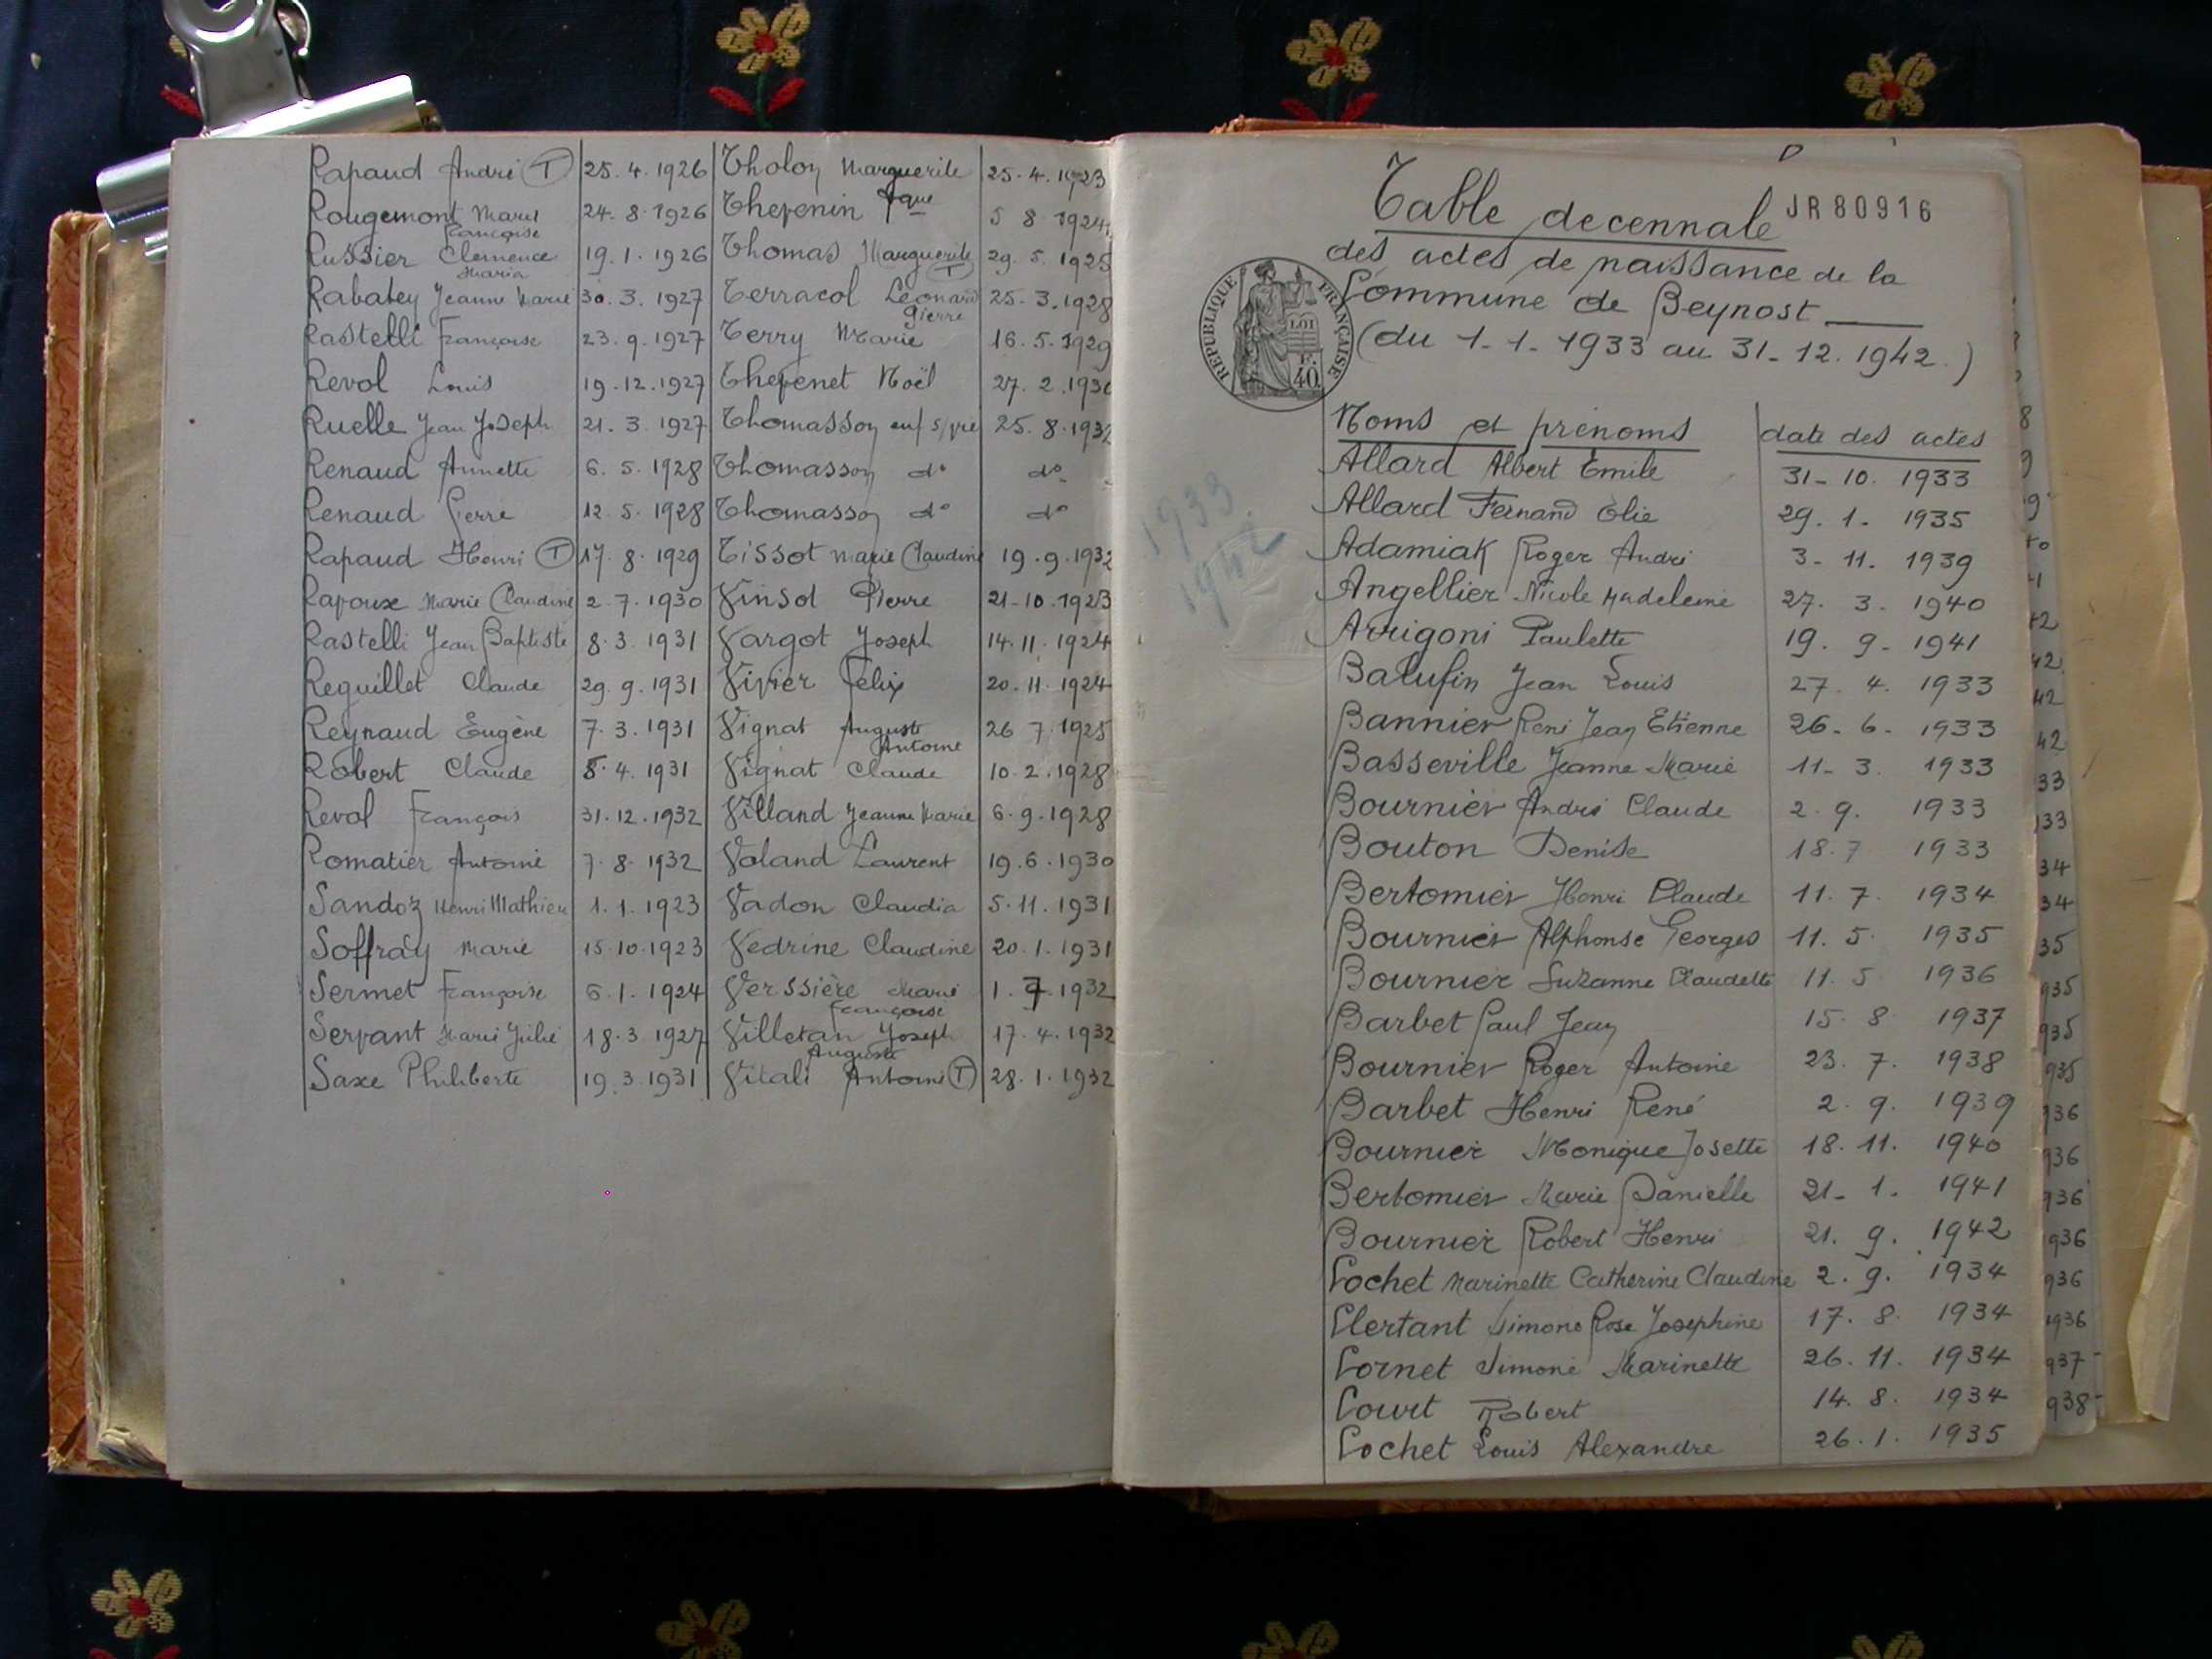 Rapaud André (T) 25.4.1926
Rougemont Marie Françoise 24.8.1926
Russier Clemence Maria 19.1.1926
Rabatey Jeanne Marie 30.3.1927
Rastelli Françoise 23.9.1927
Revol Louis 19.12.1927
Ruelle Jean Joseph 21.3.1927
Renaud Annette 6.5.1928
Renaud Pierre 12.5.1928
Rapaud Henri (T) 17.8.1929
Rapoux Marie Claudine 2.7.1930
Rastelli Jean Baptiste 8.3.1931
Reguillet Claude 29.9.1931
Reynaud Eugène 7.3.1931
Robert Claude 8.4.1931
Reval François 31.12.1932
Romatier Antoine 7.8.1932
Sandoz Henri Mathieu 1.1.1923
Soffray Marie 15.10.1923
Sermet Françoise 6.1.1924
Servant Marie Julie 18.3.1927
Saxe Philiberte 19.3.1931
Tholon Marguerite 25.4.1923
Thevenin 5 8 1924
Thomas Marguerite (T) 29.5.1925
Terracol Léonard Pierre 25.3.1928
Terry Marie 16.5.1929
Thevenet Noël 27.2.1930
Thomasson enf s/vie 25.8.1932
Thomasson d° d°
Thomasson d° d°
Tissot Marie Claudine 19.9.1932
Vinsot Pierre 21-10.1923
Vargot Joseph 14.11.1924
Vivier Félix 20.11.1924
Vignat Auguste Antoine 26 7.1925
Vignat Claude 10.2.1928
Villand Jeanne Marie 6.9.1928
Valand Laurent 19.6.1930
Vadon Claudia 5.11.1931
Vedrine Claudine 20.1.1931
Verssière Marie Françoise 1.7.1932
Villetan Joseph Auguste 17.4.1932
Vitali Antoine (T) 28.1.1932
1933
1942
Table decennale JR80916
des actes de naissance de la
Commune de Beynost
(du 1-1-1933 au 31-12.1942.)
REPUBLIQUE FRANÇAISE
LOI
F.
40.
Noms et prénoms date des actes
Allard Albert Emile 31-10.1933
Allard Fernand Elie 29.1-1935
Adamiak Roger André 3-11.1939
Angellier Nicole Madeleine 27.3-1940
Arrigoni Paulette 19.9-1941
Balufin Jean Louis 27.4.1933
Bannier René Jean Etienne 26-6-1933
Basseville Jeanne Marie 11-3.1933
Bournier André Claude 2.9.1933
Bouton Denise 18.7 1933
Bertomier Henri Claude 11.7.1934
Bournier Alphonse Georges 11.5.1935
Bournier Suzanne Claudette 11.5 1936
Barbet Paul Jean 15.8 1937
Bournier Roger Antoine 23.7.1938
Barbet Henri René 2.9.1939
Bournier Monique Josette 18.11.1940
Bertomier Marie Danielle 21-1.1941
Bournier Robert Henri 21.9.1942
Cochet Marinette Catherine Claudine 2.9.1934
Clertant Simone Rose Josephine 17.8.1934
Cornet Simone Marinette 26.11.1934
Court Robert 14.8.1934
Cochet Louis Alexandre 26.1.1935
8
9
42
42
42
33
33
34
34
35
935
935
935
936
936
936
936
936
1936
937
938